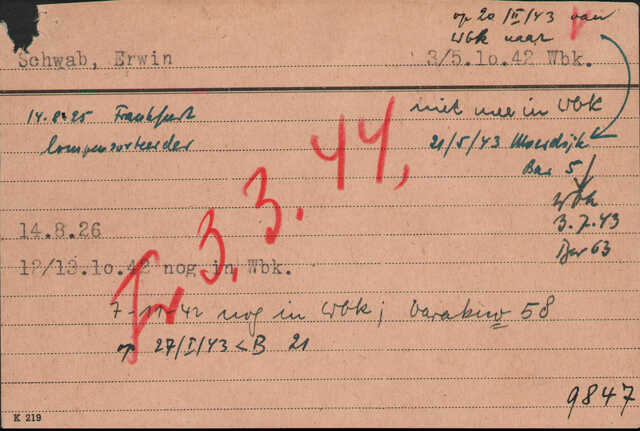 op 20/II/43 van
Wbk naar
Schwab, Erwin 3/5.10.42 Wbk.
niet meer in Wbk
14.8.25 Frankfurt
lompensorteerder
21/5/43 Moerdijk
Bar 5
Wbk
3.7.43
Bar 63
Tr 3.3.44,
14.8.26
12/13.10.42 nog in Wbk.
7-11-42 nog in Wbk; barak 58
op 27/I/43 < B 21
9847
K 219